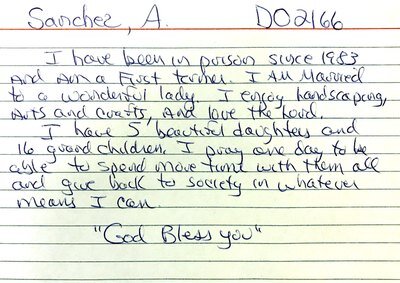 Sanchez, A. DO2166
I have been in prison since 1983
and am a First termer. I Am Married
to a wonderful lady. I enjoy landscaping,
Arts and crafts, And love the Lord.
I have 5 beautiful daughters and
16 grandchildren. I pray one day to be
able to spend more time with them all
and give back to society in whatever
means I can.
"God Bless you"